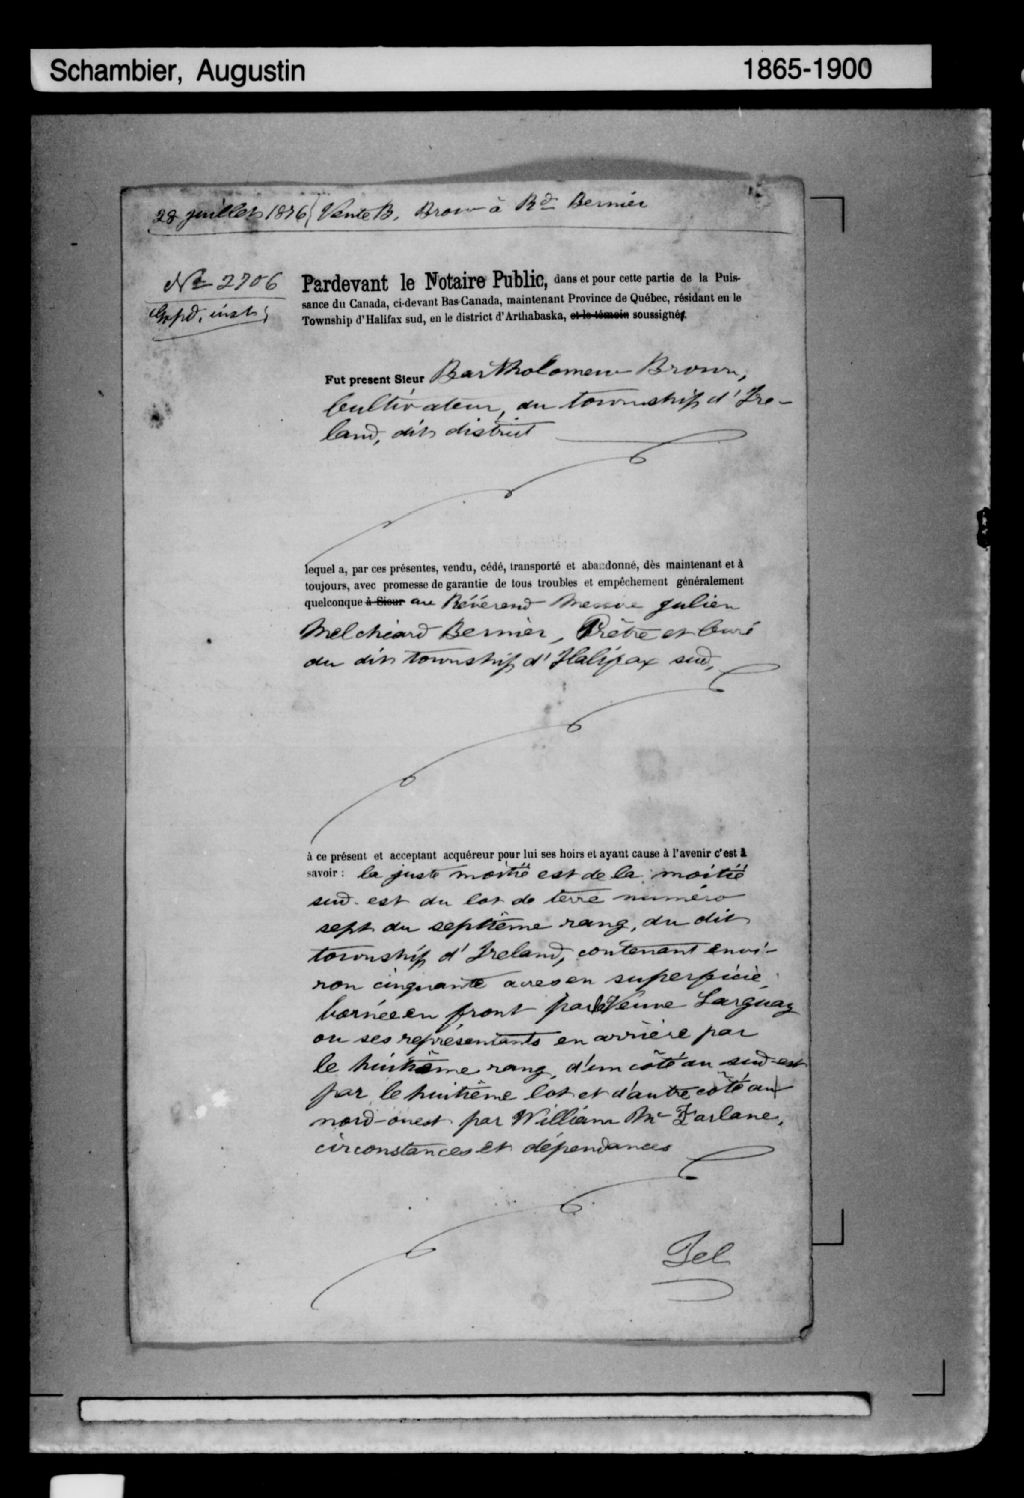 Schambier, Augustin 1865-1900
28 juillet 1876 Vente B. Brown à Rd Bernier
No 2706
Pardevant le Notaire Public, dans et pour cette partie de la Puis-
sance du Canada, ci-devant Bas-Canada, maintenant Province de Québec, résidant en le
Township d'Halifax sud, en le district d'Arthabaska, et le témoin soussigné
Fut present Sieur Bartholomew Brown,
Cultivateur, du township d'Ire-
land, dit district
lequel a, par ces présentes, vendu, cédé, transporté et abandonné, dès maintenant et à
toujours, avec promesse de garantie de tous troubles et empêchement généralement
quelconque à Sieur au Révérend Messire Julien
Melchiard Bernier, Prêtre et Curé
du dit township d'Halifax sud,
à ce présent et acceptant acquéreur pour lui ses hoirs et ayant cause à l'avenir c'est à
savoir : la juste moitié est de la moitié
sud-est du lot de terre numéro
sept du septième rang, du dit
township d'Ireland, contenant envi-
ron cinquante acres en superficie,
bornée en front par Veuve Larguay
ou ses représentants en arrière par
le huitième rang, d'un côté au sud-est
par le huitième lot et d'autre côté au
nord-ouest par William Mc Farlane,
circonstances et dépendances
Tel